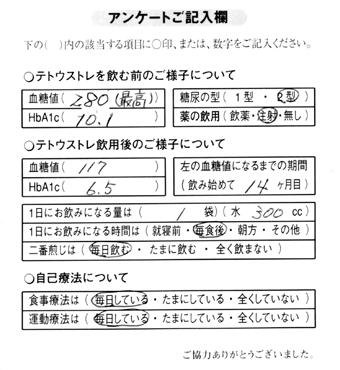 アンケートご記入欄
下の( )内の該当する項目に〇印、または、数字をご記入ください。
〇テトウストレを飲む前のご様子について
血糖値( 280 (最高) ) 糖尿の型( 1型 ・ 2型 )
HbA1c( 10.1 ) 薬の飲用( 飲薬・注射・無し )
〇テトウストレ飲用後のご様子について
血糖値( 117 ) 左の血糖値になるまでの期間
HbA1c( 6.5 ) ( 飲み始めて 14 ヶ月目)
1日にお飲みになる量は ( 1 袋) ( 水 300 cc)
1日にお飲みになる時間は ( 就寝前・毎食後・朝方・その他 )
二番煎じは ( 毎日飲む ・ たまに飲む ・ 全く飲まない )
〇自己療法について
食事療法は ( 毎日している・たまにしている・全くしていない )
運動療法は ( 毎日している・たまにしている・全くしていない )
ご協力ありがとうございました。